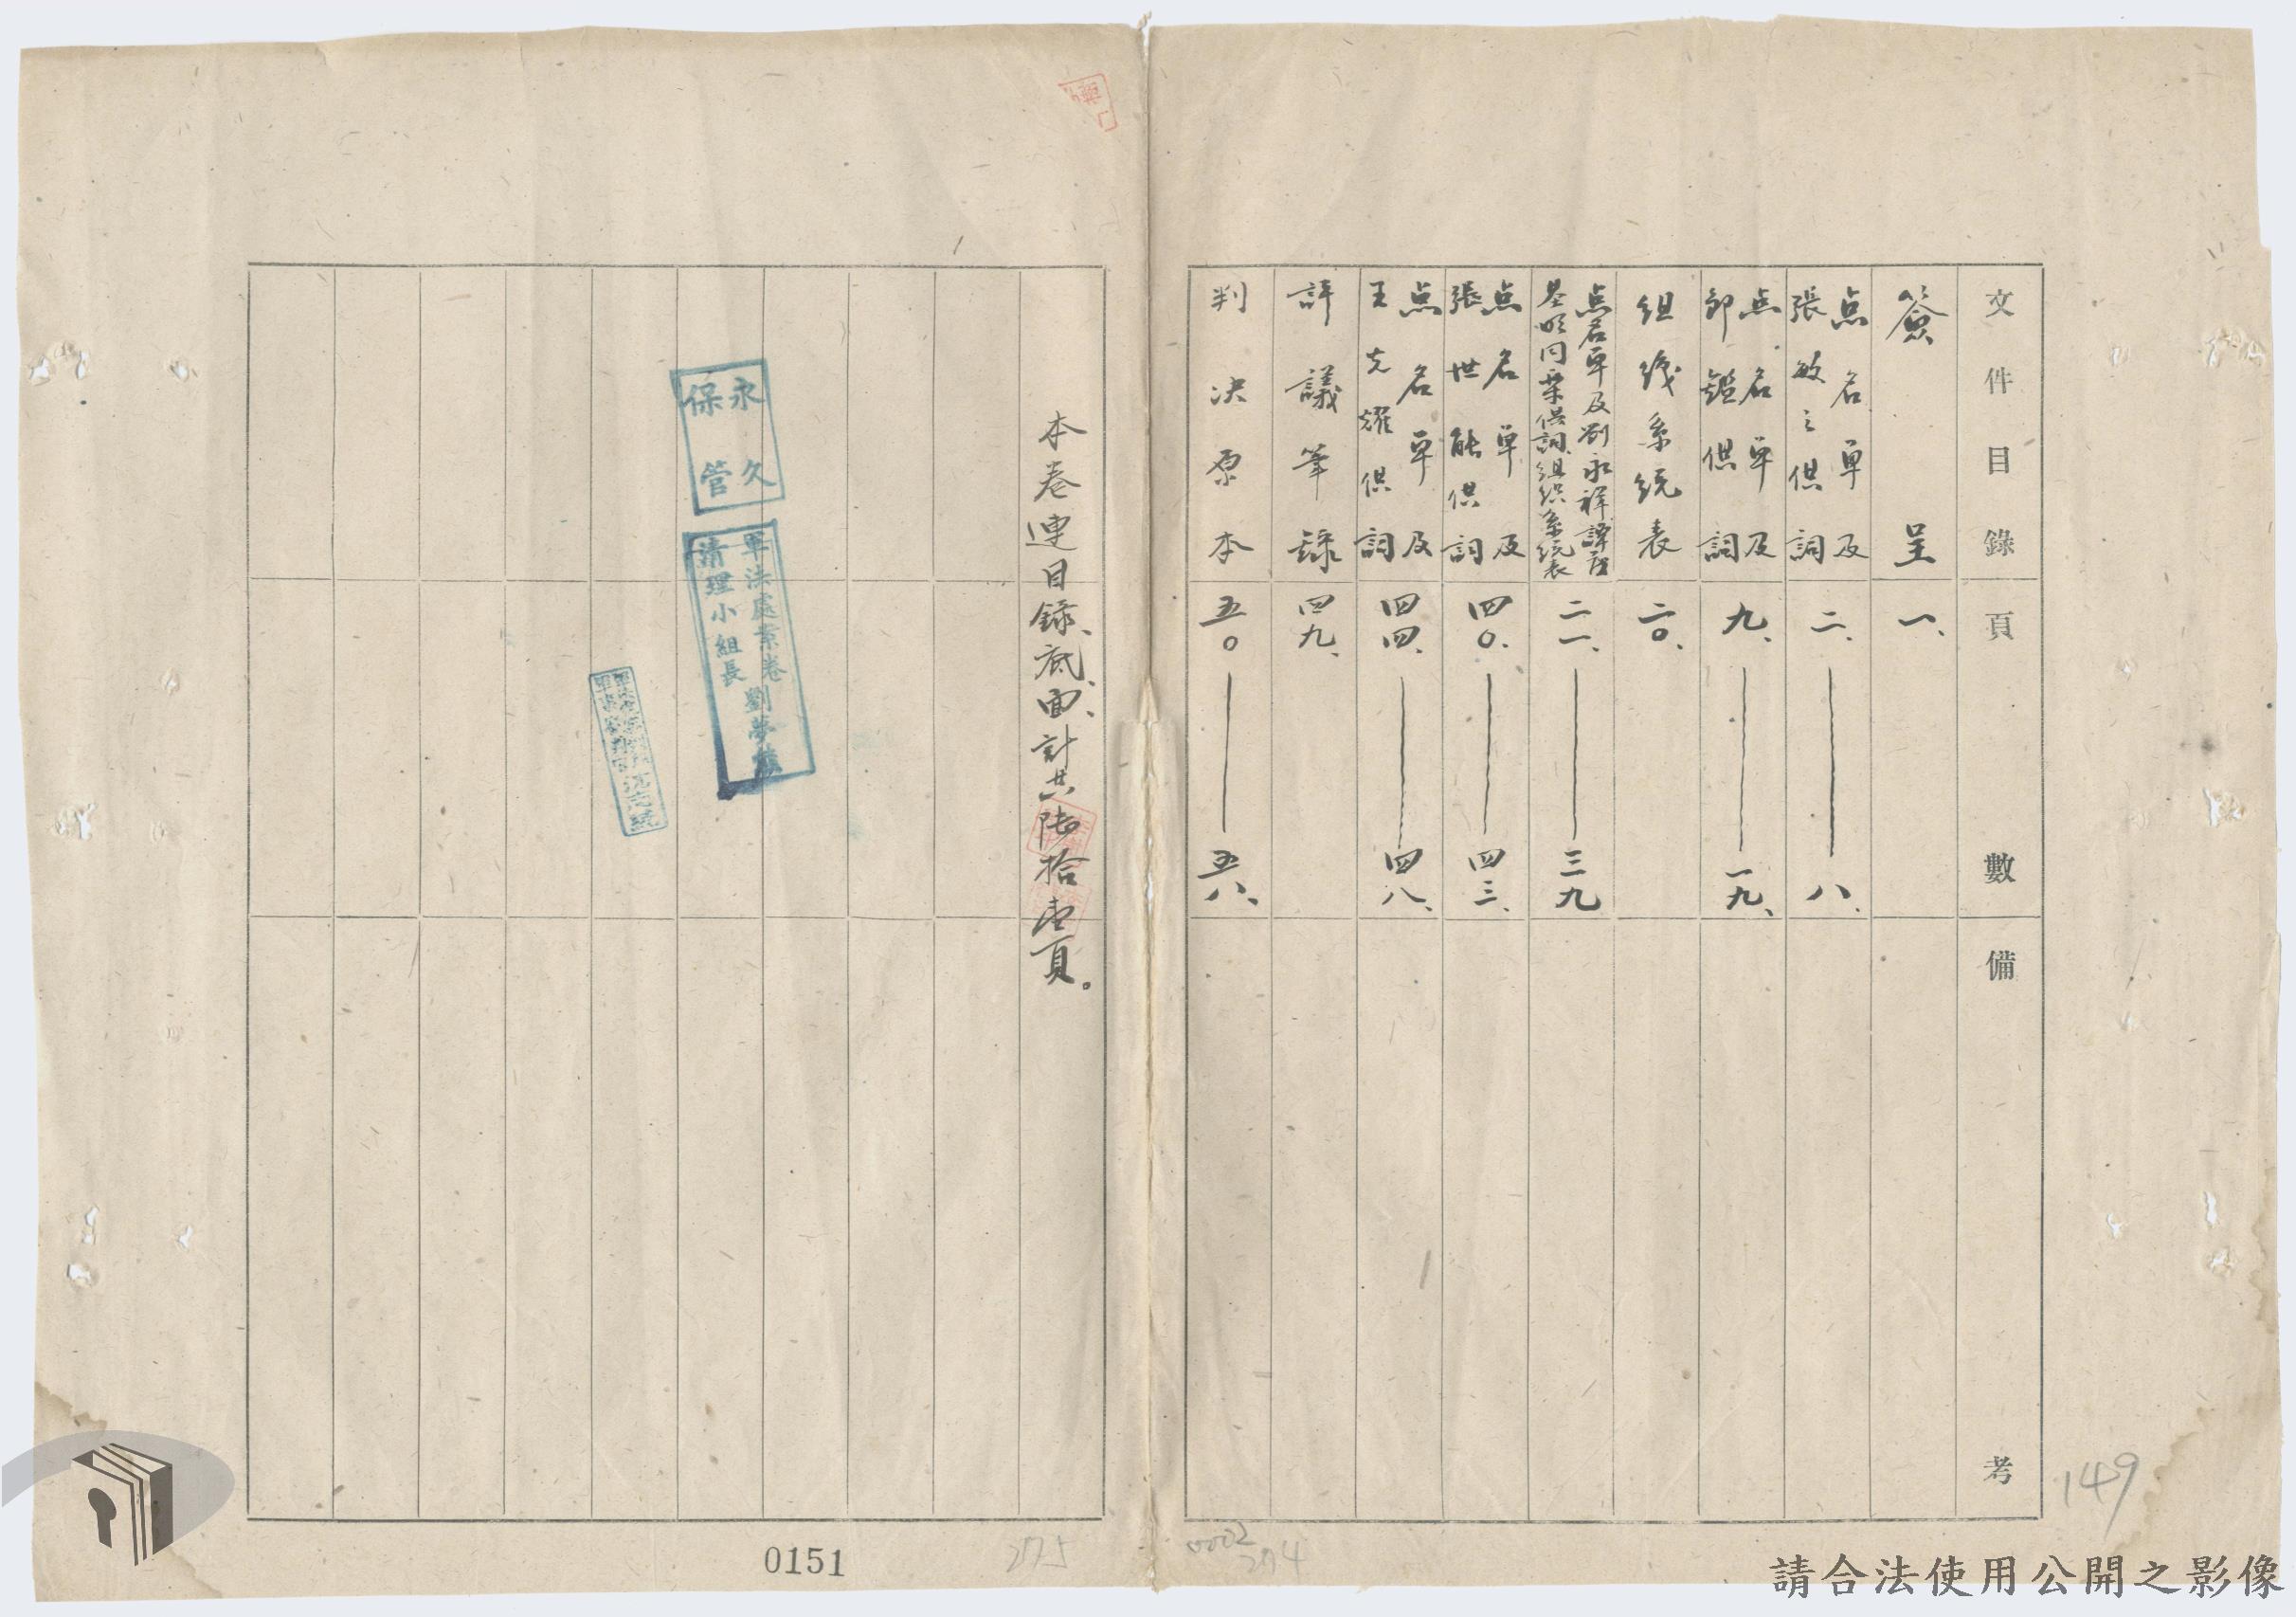 文件目錄 頁數 備考
簽呈 一、
点名單及
張敏之供詞 二、——八、
点名單及
鄒鑑供詞 九、——一九、
组织系統表 二〇、
点名單及劉永祥譚茂
基明同棠供詞、組织系統表 二一、——三九
点名單及
張世能供詞 四〇、——四三、
点名單及
王光耀供詞 四四、——四八、
評議筆録 四九、
判决原本 五〇——五八、
本卷連目錄、底、面、計共陸拾壹頁。
永久
保管
軍法處案卷
清理小組長
劉夢
0151
275
0002
274
149
請合法使用公開之影像